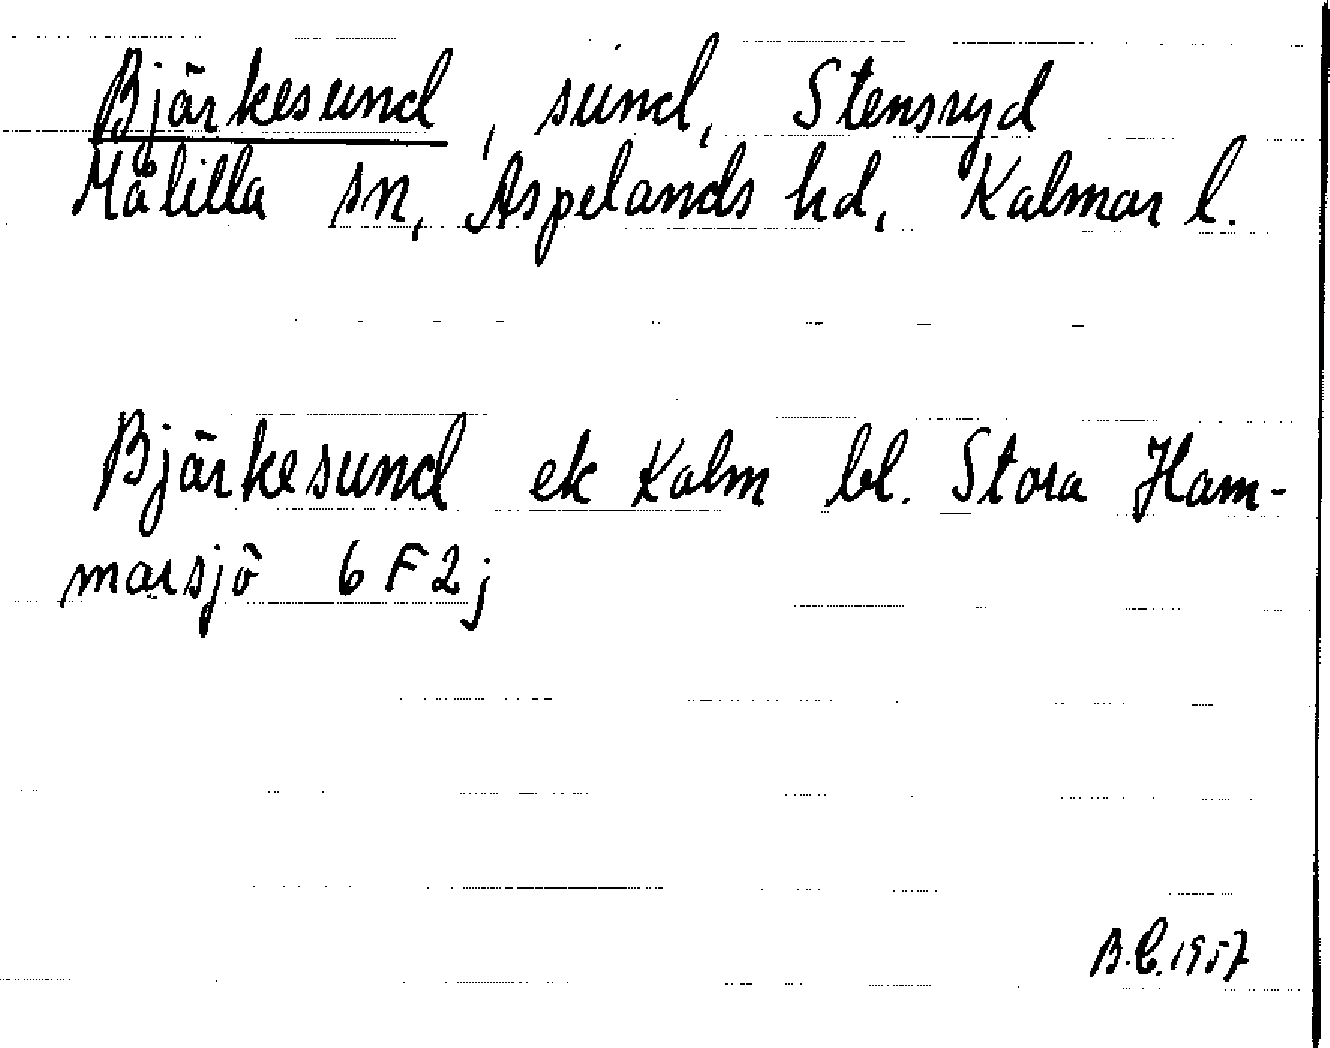 Bjärkesund, sund, Stensryd
Målilla sn, Aspelands hd, Kalmar l.
Bjärkesund ek Kalm bl. Stora Ham-
marsjö 6 F 2 j
B.C. 1957